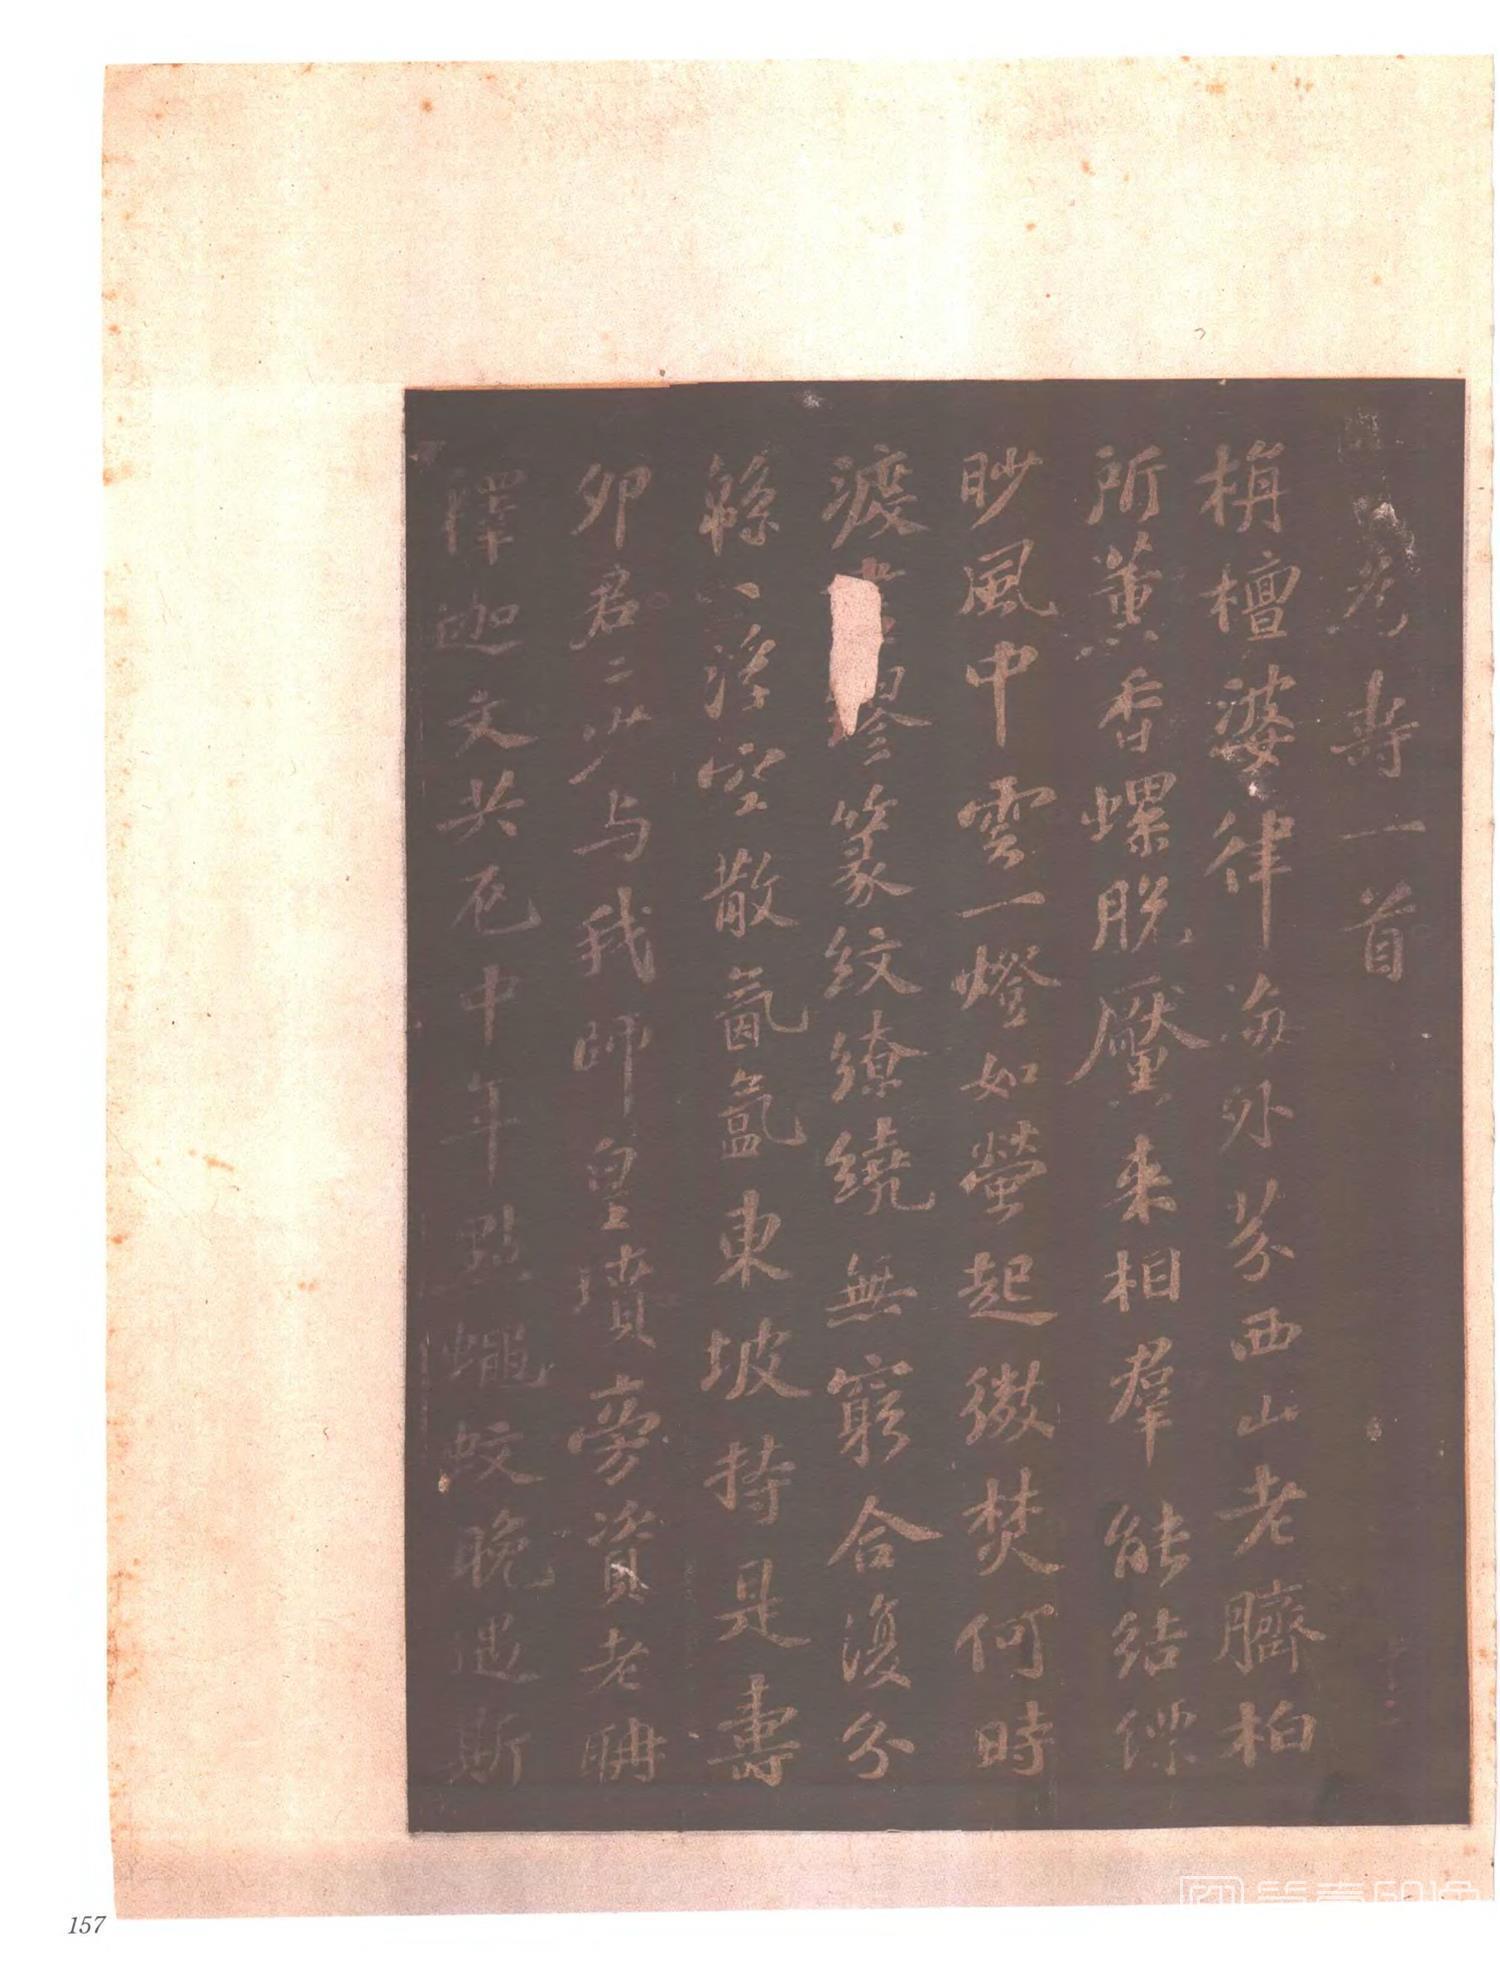 老壽一首
栴檀婆律海外芬西山老臍柏
所薰香螺脫黶来相羣能結縹
眇風中雲一燈如螢起微焚何時
度繆篆紋繚繞無窮合復分
緜〻浮空散氤氳東坡持是壽
卯君〻少与我師皇墳旁資老聃
釋迦文共厄中年點蠅蚊晚遇斯
157